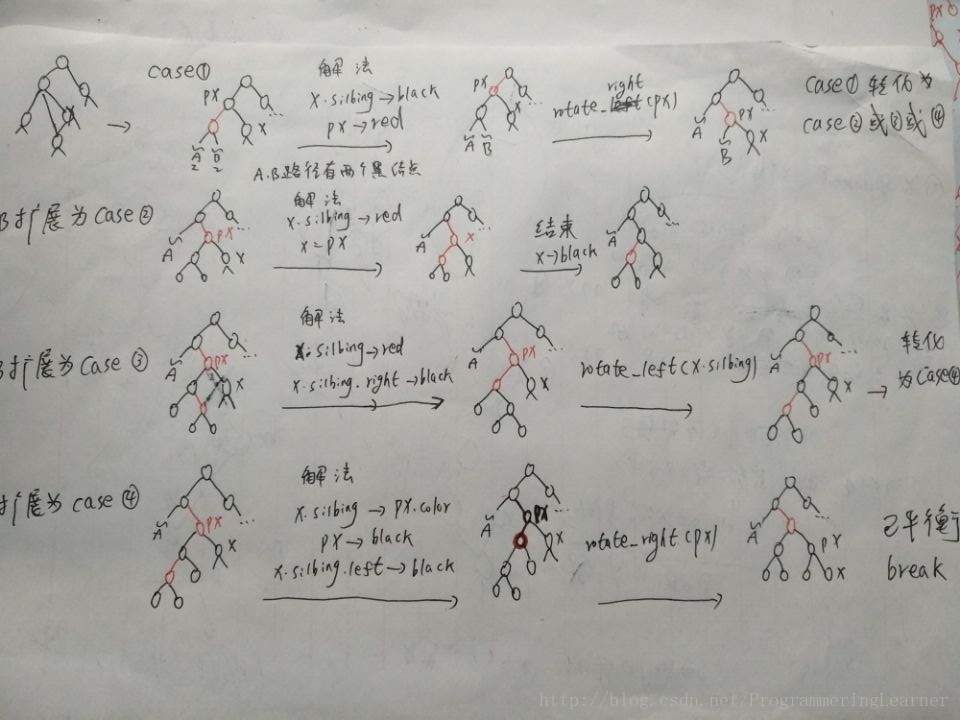 case①
解法
x.silbing→black
px→red
A.B路径有两个黑结点
px
A
2
B
2
x
px
A
B
x
...
right
rotate_left(px)
A
px
B
x
...
case①转化为
case②或③或④
px
B扩展为case②
A
px
x
...
解法
x.silbing→red
x=px
A
x
...
结束
x→black
A
...
B扩展为case③
A
px
x
...
解法
x.silbing→red
x.silbing.right→black
A
px
x
...
rotate_left(x.silbing)
A
px
x
...
转化
为case④
扩展为case④
A
px
x
...
解法
x.silbing→px.color
px→black
x.silbing.left→black
A
px
x
...
rotate_right(px)
A
px
x
...
已平衡
break
http://blog.csdn.net/ProgrammeringLearner